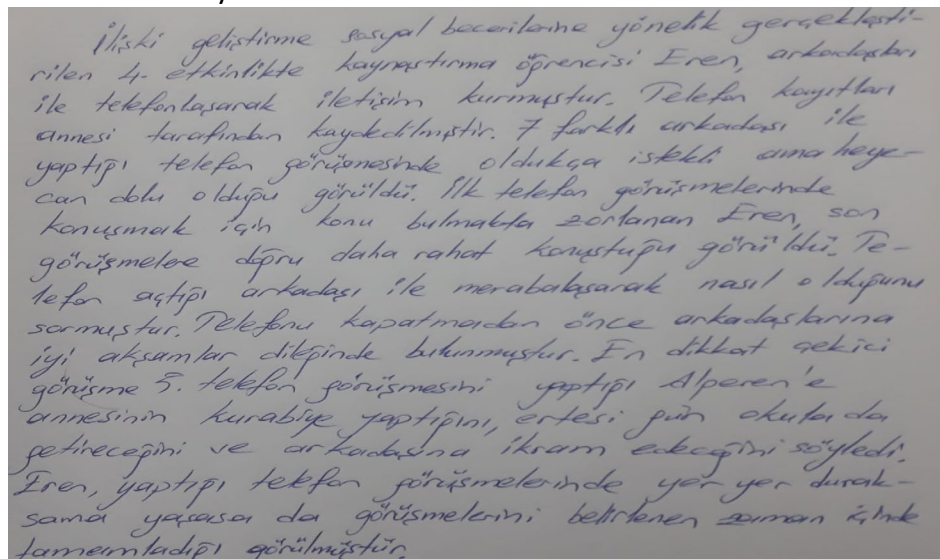 İlişki geliştirme sosyal becerilerine yönelik gerçekleşti-
rilen 4. etkinlikte kaynaştırma öğrencisi Eren, arkadaşları
ile telefonlaşarak iletişim kurmuştur. Telefon kayıtları
annesi tarafından kaydedilmiştir. 7 farklı arkadaşı ile
yaptığı telefon görüşmesinde oldukça istekli ama heye-
can dolu olduğu görüldü. İlk telefon görüşmelerinde
konuşmak için konu bulmakta zorlanan Eren, son
görüşmelere doğru daha rahat konuştuğu görüldü. Te-
lefon açtığı arkadaşı ile merabalaşarak nasıl olduğunu
sormuştur. Telefonu kapatmadan önce arkadaşlarına
iyi akşamlar dileğinde bulunmuştur. En dikkat çekici
görüşme 5. telefon görüşmesini yaptığı Alperen'e
annesinin kurabiye yaptığını, ertesi gün okula da
getireceğini ve arkadaşına ikram edeceğini söyledi.
Eren, yaptığı telefon görüşmelerinde yer yer durak-
sama yaşasa da görüşmelerini belirlenen zaman içinde
tamamladığı görülmüştür.